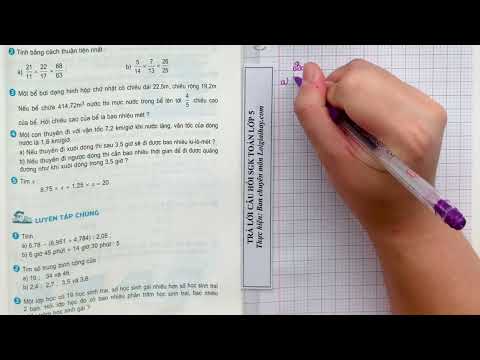 2 Tính bằng cách thuận tiện nhất :
a) 21/11 × 22/17 × 68/63
b) 5/14 × 7/13 × 26/25
3 Một bể bơi dạng hình hộp chữ nhật có chiều dài 22,5m, chiều rộng 19,2m
Nếu bể chứa 414,72m³ nước thì mực nước trong bể lên tới 4/5 chiều cao
của bể. Hỏi chiều cao của bể là bao nhiêu mét ?
4 Một con thuyền đi với vận tốc 7,2 km/giờ khi nước lặng, vận tốc của dòng
nước là 1,6 km/giờ.
a) Nếu thuyền đi xuôi dòng thì sau 3,5 giờ sẽ đi được bao nhiêu ki-lô-mét ?
b) Nếu thuyền đi ngược dòng thì cần bao nhiêu thời gian để đi được quãng
đường như khi xuôi dòng trong 3,5 giờ ?
5 Tìm x :
8,75 × x + 1,25 × x = 20
LUYỆN TẬP CHUNG
1 Tính
a) 6,78 – (8,951 + 4,784) : 2,05 ;
b) 6 giờ 45 phút + 14 giờ 30 phút : 5
2 Tìm số trung bình cộng của :
a) 19 ; 34 và 46.
b) 2,4 ; 2,7 ; 3,5 và 3,8.
3 Một lớp học có 19 học sinh trai, số học sinh gái nhiều hơn số học sinh trai
2 bạn. Hỏi lớp học đó có bao nhiêu phần trăm học sinh trai, bao nhiêu
phần trăm học sinh gái ?
TRẢ LỜI CÂU HỎI SGK TOÁN LỚP 5
Thực hiện: Ban chuyên môn Loigiaihay.com
a)